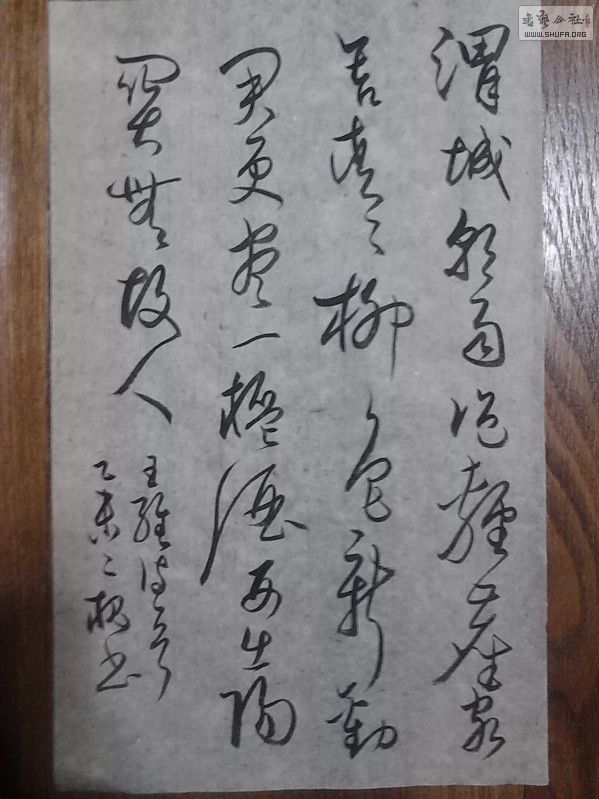 渭城朝雨浥輕塵客
舍青々柳色新勸
君更盡一杯酒西出陽
關無故人
王維詩
乙未書
書藝公社
WWW.SHUFA.ORG